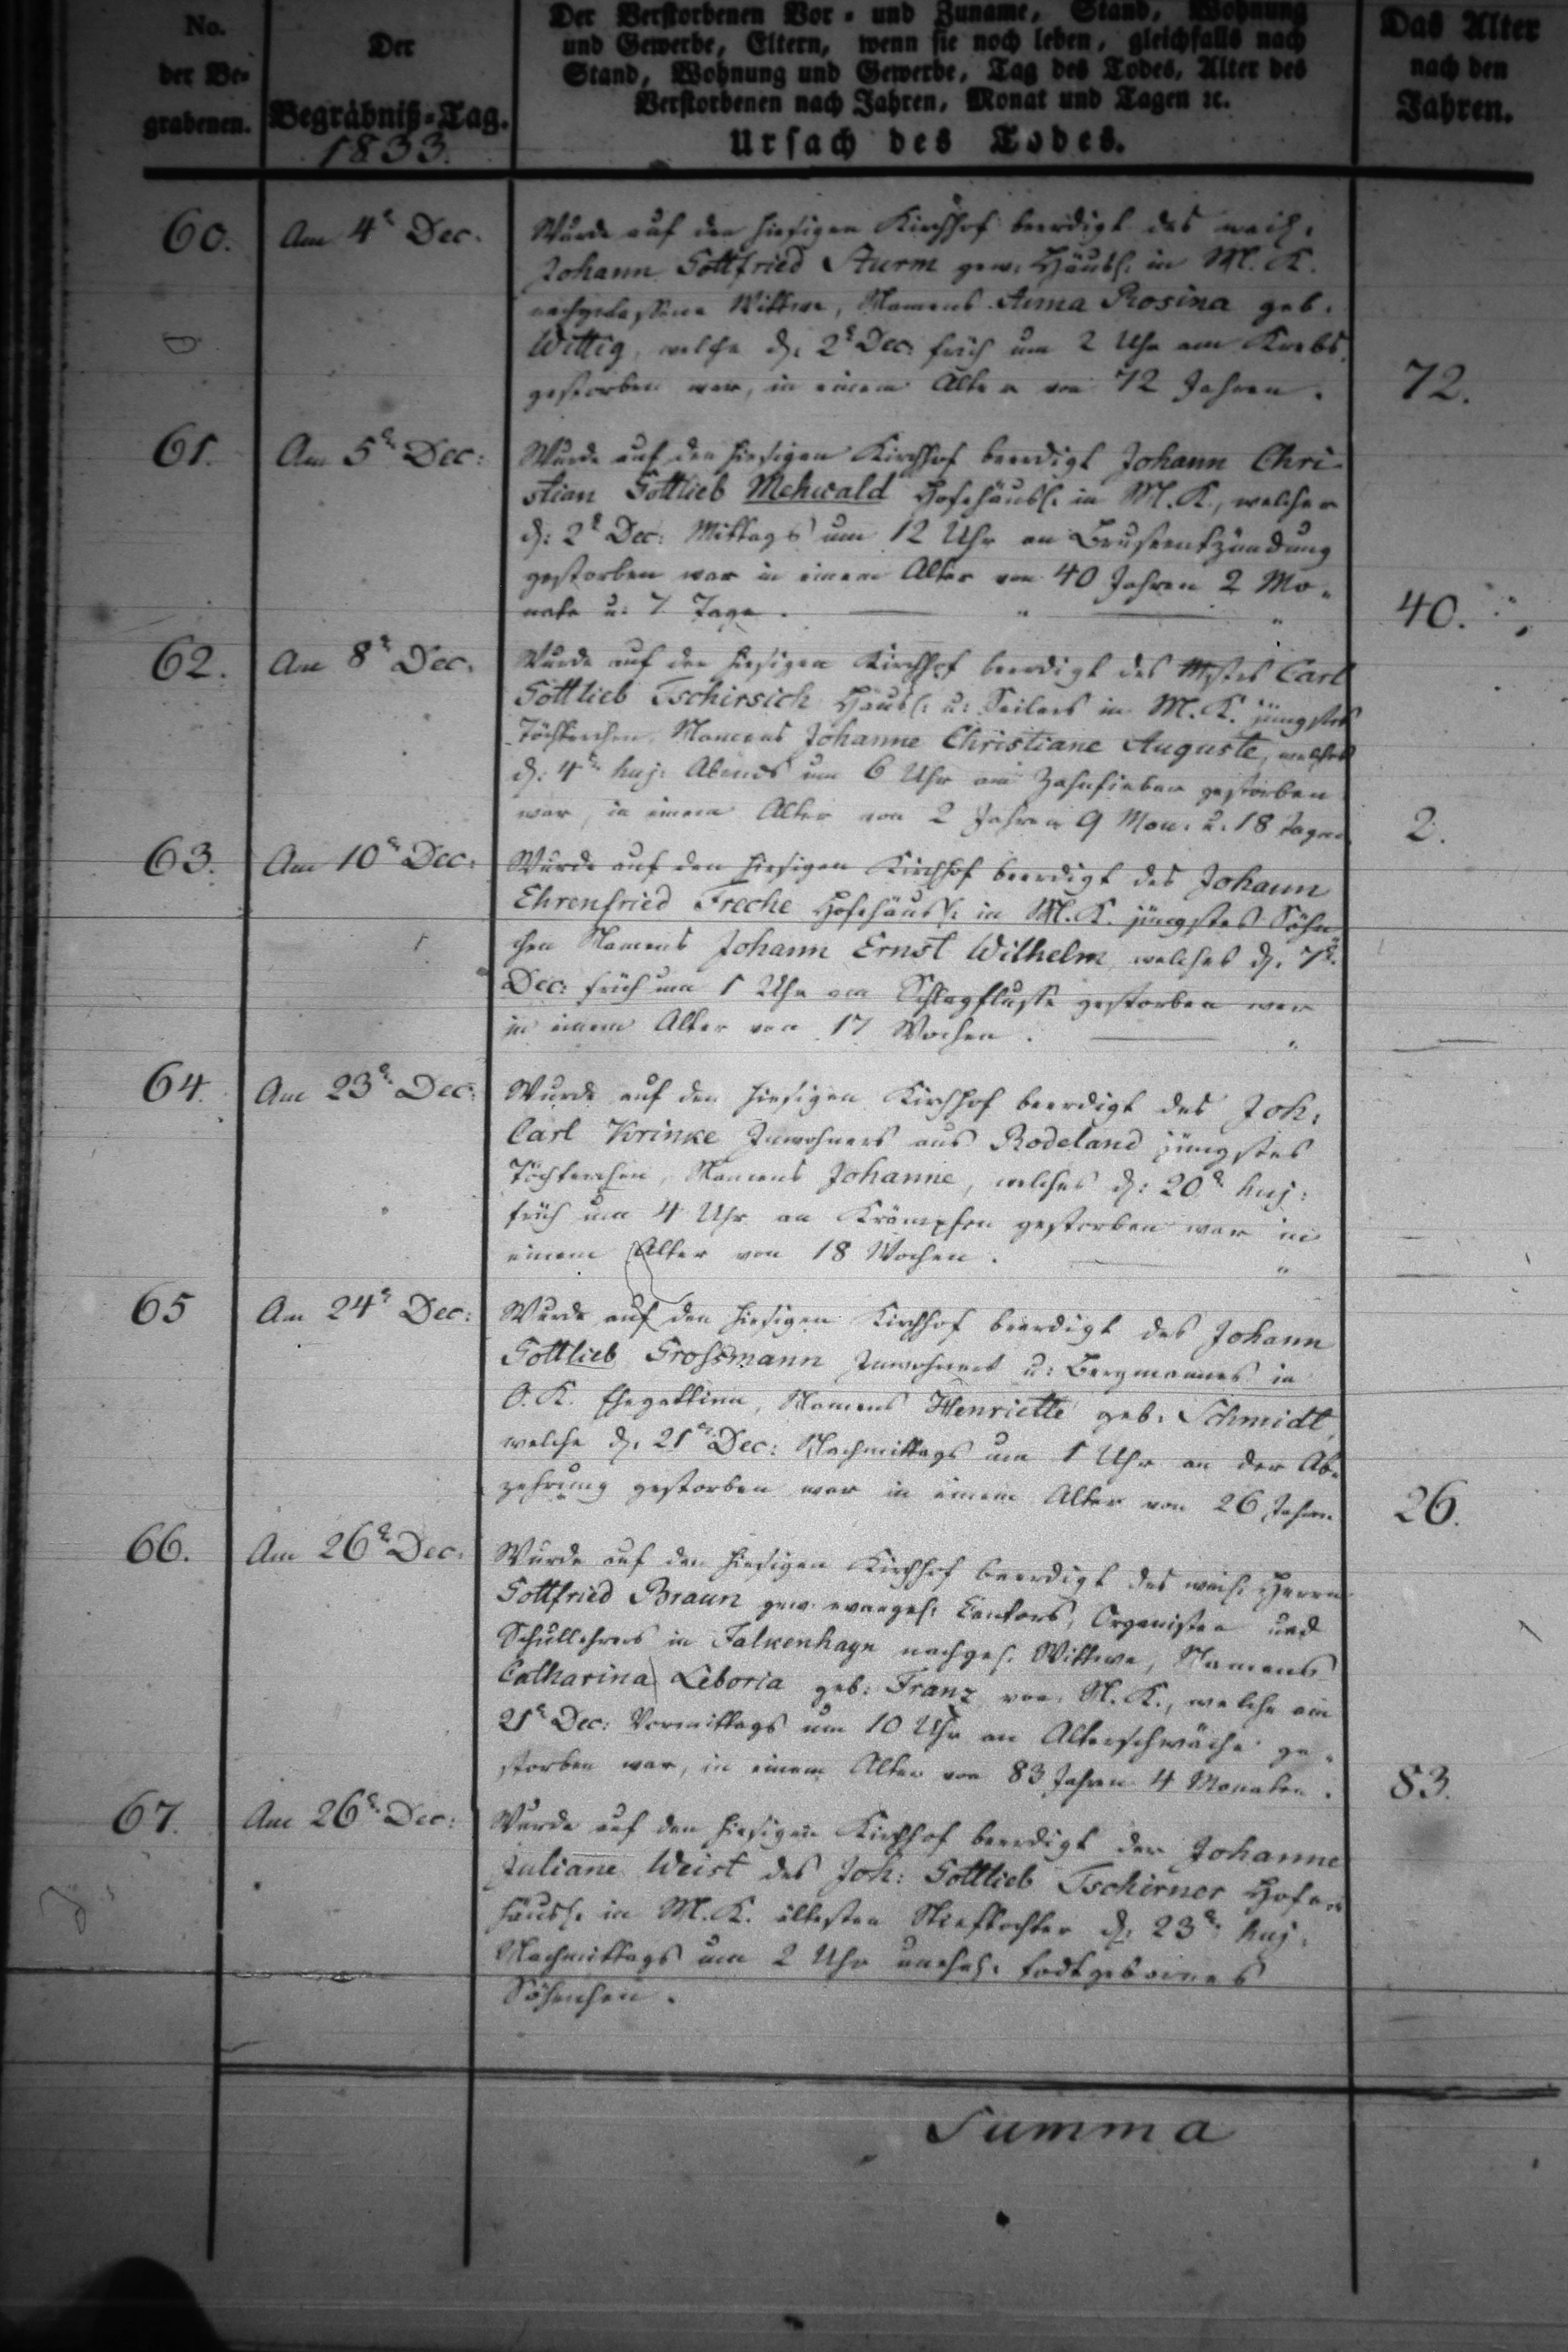 No.
der Be-
grabenen.
Der
Begräbniß-Tag.
1833.
Der Verstorbenen Vor- und Zuname, Stand, Wohnung
und Gewerbe, Eltern, wenn sie noch leben, gleichfalls nach
Stand, Wohnung und Gewerbe, Tag des Todes, Alter des
Verstorbenen nach Jahren, Monat und Tagen ꝛc.
Ursach des Todes.
Das Alter
nach den
Jahren.
60.
Am 4t Dec.
Wurde auf den hiesigen Kirchhof beerdigt des weil.
Johann Gottfried Sturm gew. Häusl. in M. K.
nachgelassene Wittwe, Namens Anna Rosina geb.
Wittig, welche d. 2t Dec: früh um 2 Uhr am Krebs
gestorben war, in einem Alter von 72 Jahren.
72.
61.
Am 5t Dec:
Wurde auf den hiesigen Kirchhof beerdigt Johann Chri-
stian Gottlieb Mehwald Hofehäusl. in M. K., welcher
d: 2t Dec: Mittags um 12 Uhr an Brustentzündung
gestorben war in einem Alter von 40 Jahren 2 Mo-
nate u: 7 Tage.
40.
62.
Am 8t Dec.
Wurde auf den hiesigen Kirchhof beerdigt des Mstrs Carl
Gottlieb Tschirsich Häusl: u: Seilers in M. K. jüngstes
Töchterchen, Namens Johanne Christiane Auguste, welches
d: 4t huj: Abends um 6 Uhr am Zahnfieber gestorben
war, in einem Alter von 2 Jahren 9 Mon: u: 18 Tagen.
2.
63.
Am 10t Dec:
Wurde auf den hiesigen Kirchhof beerdigt des Johann
Ehrenfried Freche Hofehäusl: in M. K. jüngstes Söhn-
chen Namens Johann Ernst Wilhelm, welches d. 7t
Dec: früh um 1 Uhr am Schlagflusse gestorben war
in einem Alter von 17 Wochen.
64.
Am 23t Dec:
Wurde auf den hiesigen Kirchhof beerdigt des Joh:
Carl Krinke Inwohners aus Rodeland jüngstes
Töchterchen, Namens Johanne, welches d: 20t huj:
früh um 4 Uhr an Krämpfen gestorben war in
einem Alter von 18 Wochen.
65
Am 24t Dec:
Wurde auf den hiesigen Kirchhof beerdigt des Johann
Gottlieb Grossmann Inwohners u: Bergmannes in
O. K. Ehegattinn, Namens Henriette geb. Schmidt,
welche d. 21t Dec: Nachmittags um 1 Uhr an der Ab-
zehrung gestorben war in einem Alter von 26 Jahren.
26.
66.
Am 26t Dec.
Wurde auf den hiesigen Kirchhof beerdigt des weil. Herrn
Gottfried Braun gew. evangel. Cantors, Organisten und
Schullehrers in Falkenhayn nachgel. Wittwe, Namens
Catharina Leboria geb: Franz von N. K., welche am
21t Dec: Vormittags um 10 Uhr an Altersschwäche ge-
storben war, in einem Alter von 83 Jahren 4 Monaten.
83.
67.
Am 26t Dec:
Wurde auf den hiesigen Kirchhof beerdigt der Johanne
Juliane Weist des Joh: Gottlieb Tschirner Hofe-
häusl. in M. K. ältesten Stieftochter d. 23t huj.
Nachmittags um 2 Uhr unehel. todtgebornes
Söhnchen.
Summa